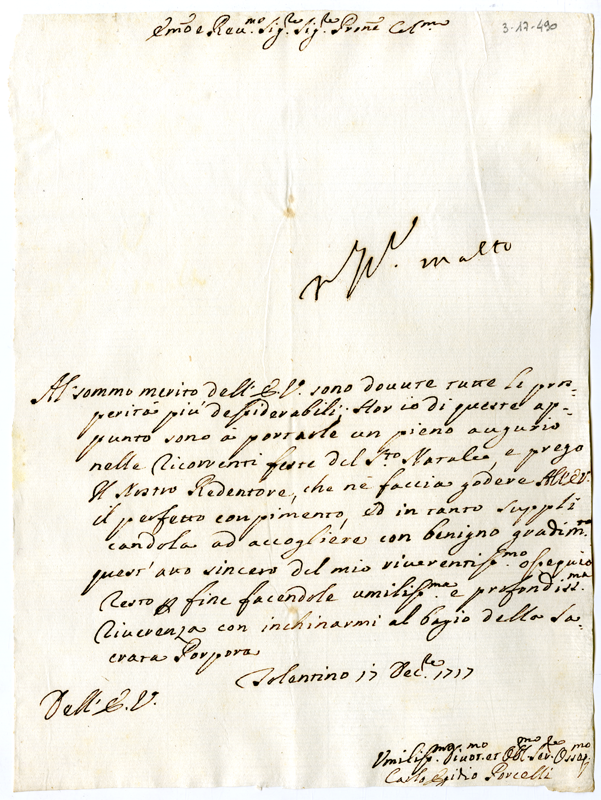 Emo e Reu.mo Sig.re Sig.re Prone Col.mo
3-17-490
malto
Al sommo merito dell' E.V. sono douute tutte le pros-
perità più desiderabili; Hor io di queste ap-
punto sono a portarle un pieno augurio
nelle ricorrenti feste del S.to Natale, e prego
Il Nostro Redentore, che ne faccia godere All'E.V.
il perfetto conpimento, ed in tanto suppli-
candola ad accogliere con benigno gradim.to
quest' atto sincero del mio riuerentiss.mo ossequio
resto fine facendole umiliss.ma e profondiss.ma
riuerenza con inchinarmi al bagio della Sa-
crata Porpora
Tolentino 17 Dec.re 1717
Dell' E.V.
Vmiliss.mo Diuot.mo et Obl.mo Ser.re Ossq.mo
Carlo Egidio Porcelli